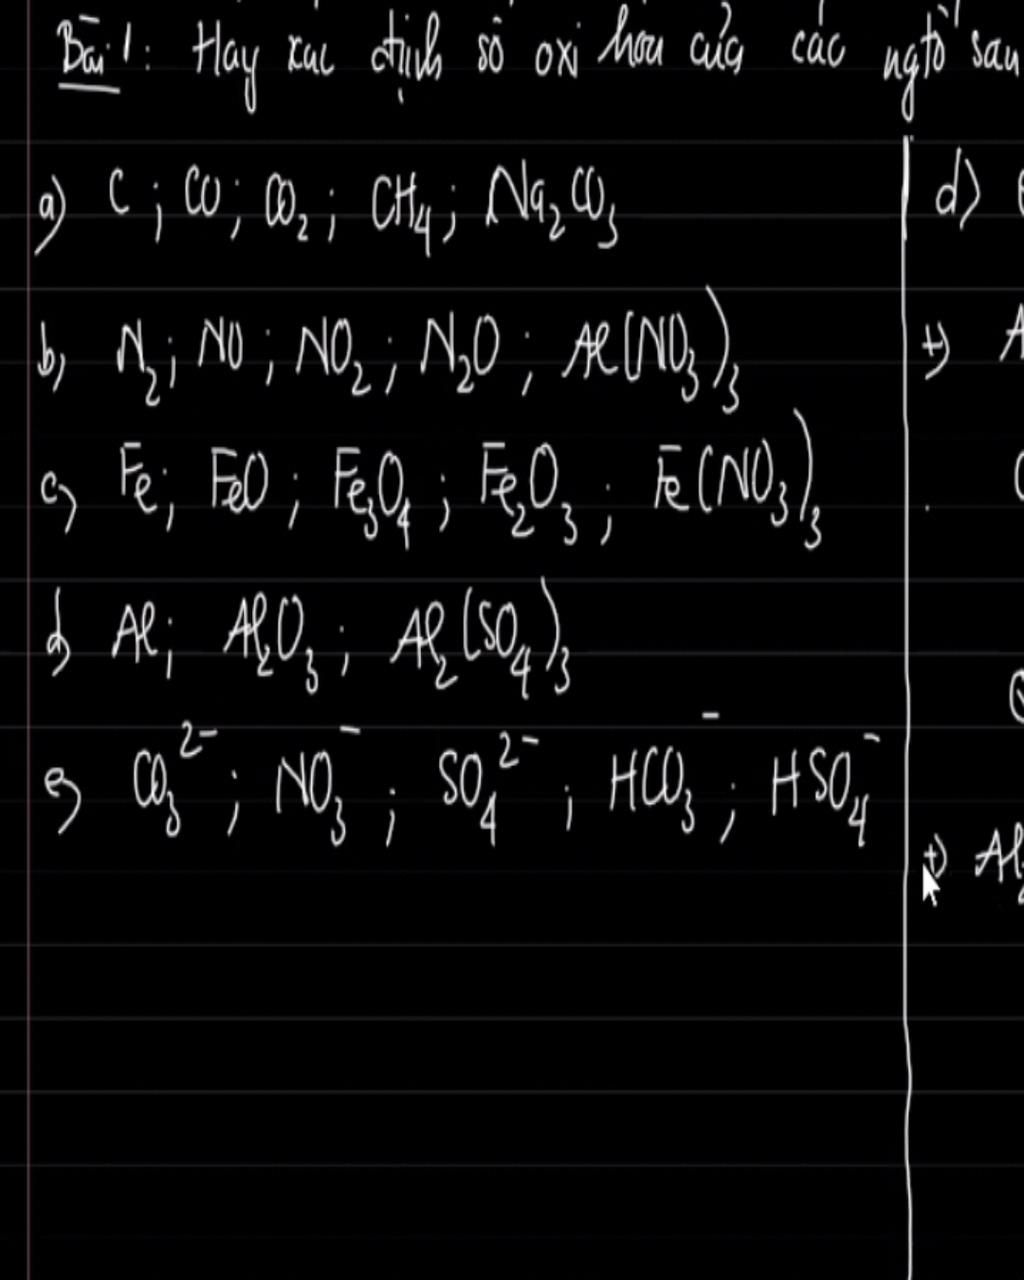 Bài 1: Hãy xác định số oxi hóa của các ngtố sau
a) C ; CO ; CO₂ ; CH₄ ; Na₂CO₃
b) N₂ ; NO ; NO₂ ; N₂O ; Al(NO₃)₃
c) Fe ; FeO ; Fe₃O₄ ; Fe₂O₃ ; Fe(NO₃)₃
d) Al ; Al₂O₃ ; Al₂(SO₄)₃
e) CO₃²⁻ ; NO₃⁻ ; SO₄²⁻ ; HCO₃⁻ ; HSO₄⁻
d)
+) A
+) Al